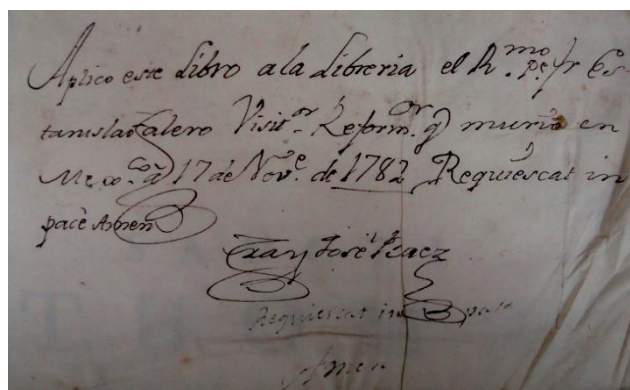 Aplico este Libro a la Libreria el R.mo P.e fr Es-
tanislao Falero Visit.or y Reform.or q murio en
Mexco. a 17 de Nov.e de 1782 Requiescat in
pace Amen
Fray José Baez
Requiescat in pace
Amen